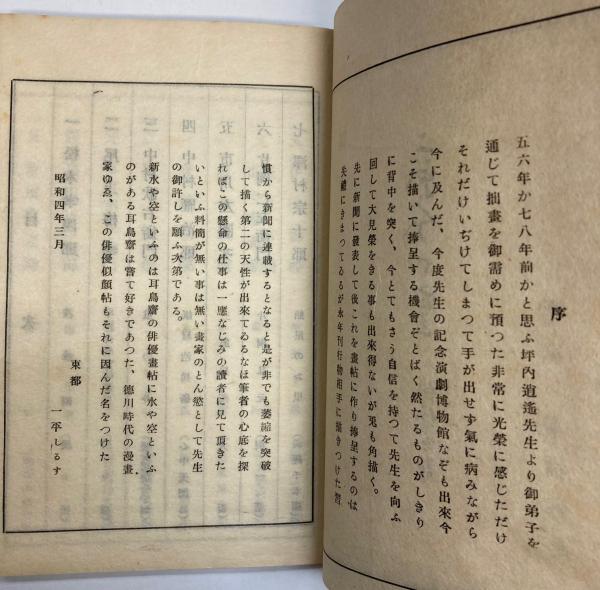 序
五六年か七八年前かと思ふ坪内逍遙先生より御弟子を
通じて拙畫を御需めに預つた非常に光榮に感じただけ
それだけいぢけてしまつて手が出せず氣に病みながら
今に及んだ、今度先生の記念演劇博物館なぞも出來今
こそ描いて捧呈する機會ぞとばく然たるものがしきり
に背中を突く、今とてもさう自信を持つて先生を向ふ
回して大見榮をきる事も出來得ないが兎も角描く。
先に新聞に發表して後これを畫帖に作り捧呈するのは
失禮にきまつてゐるが永年刊行物相手に描きつけた習
慣から新聞に連載するとなると是が非でも萎縮を突破
して描く第二の天性が出來てゐるなほ筆者の心底を探
ればこの懸命の仕事は一應なじみの讀者に見て頂きた
いといふ料簡が無い事は無い畫家のとん慾として先生
の御許しを願ふ次第である。
新水や空といふのは耳鳥齋の俳優畫帖に水や空といふ
のがある耳鳥齋は嘗て好きであつた、德川時代の漫畫
家ゆゑ、この俳優似顏帖もそれに因んだ名をつけた
昭和四年三月
東都
一平しるす